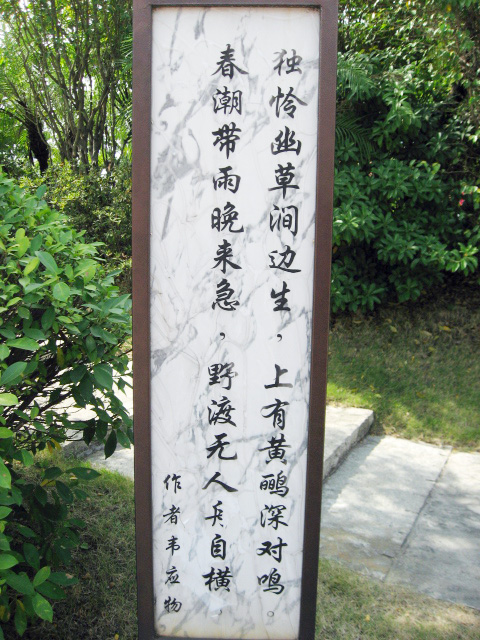 独怜幽草涧边生，上有黄鹂深对鸣。
春潮带雨晚来急，野渡无人舟自横。
作者韦应物